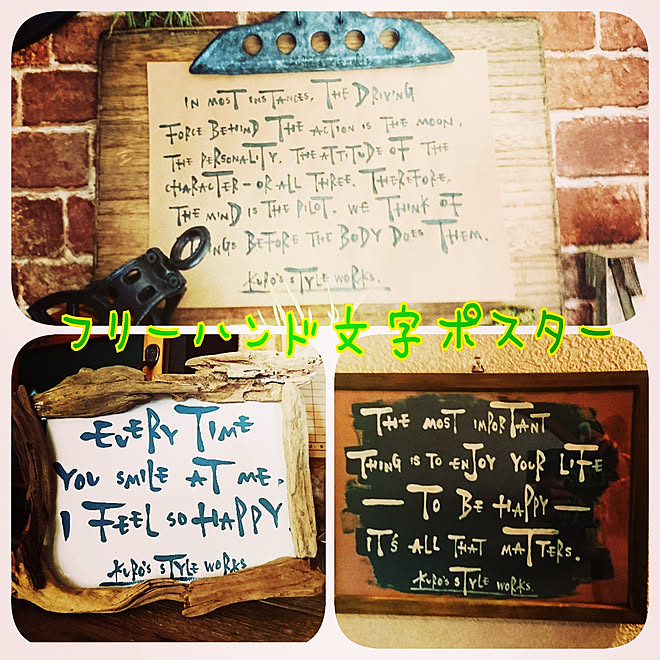 IN MOST INSTANCES, THE DRIVING
FORCE BEHIND THE ACTION IS THE MOON,
THE PERSONALITY, THE ATTITUDE OF THE
CHARACTER — OR ALL THREE. THEREFORE,
THE MIND IS THE PILOT. WE THINK OF
NGS BEFORE THE BODY DOES THEM.
KURO'S STYLE WORKS.
フリーハンド文字ポスター
EVERY TIME
YOU SMILE AT ME,
I FEEL SO HAPPY.
KURO'S STYLE WORKS
THE MOST IMPORTANT
THING IS TO ENJOY YOUR LIFE
— TO BE HAPPY —
IT'S ALL THAT MATTERS.
KURO'S STYLE WORKS.